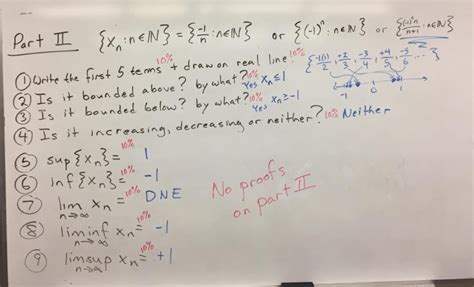 Part II {xₙ : n∈ℕ} = {-1/n : n∈ℕ} or {(-1)ⁿ : n∈ℕ} or {(-1)ⁿn/n+1 : n∈ℕ}
① Write the first 5 terms + draw on real line! 10% {-1(1)/2, +2/3, -3/4, +4/5, -5/6, ...}
② Is it bounded above? by what? 10% Yes xₙ ≤ 1 -1 0 1
③ Is it bounded below? by what? 10% Yes xₙ ≥ -1
④ Is it increasing, decreasing or neither? 10% Neither
⑤ sup{xₙ} = 10% 1
⑥ inf{xₙ} = 10% -1
⑦ lim n→∞ xₙ = 10% DNE
⑧ liminf n→∞ xₙ = 10% -1
⑨ limsup n→∞ xₙ = 10% +1
No proofs
on part II